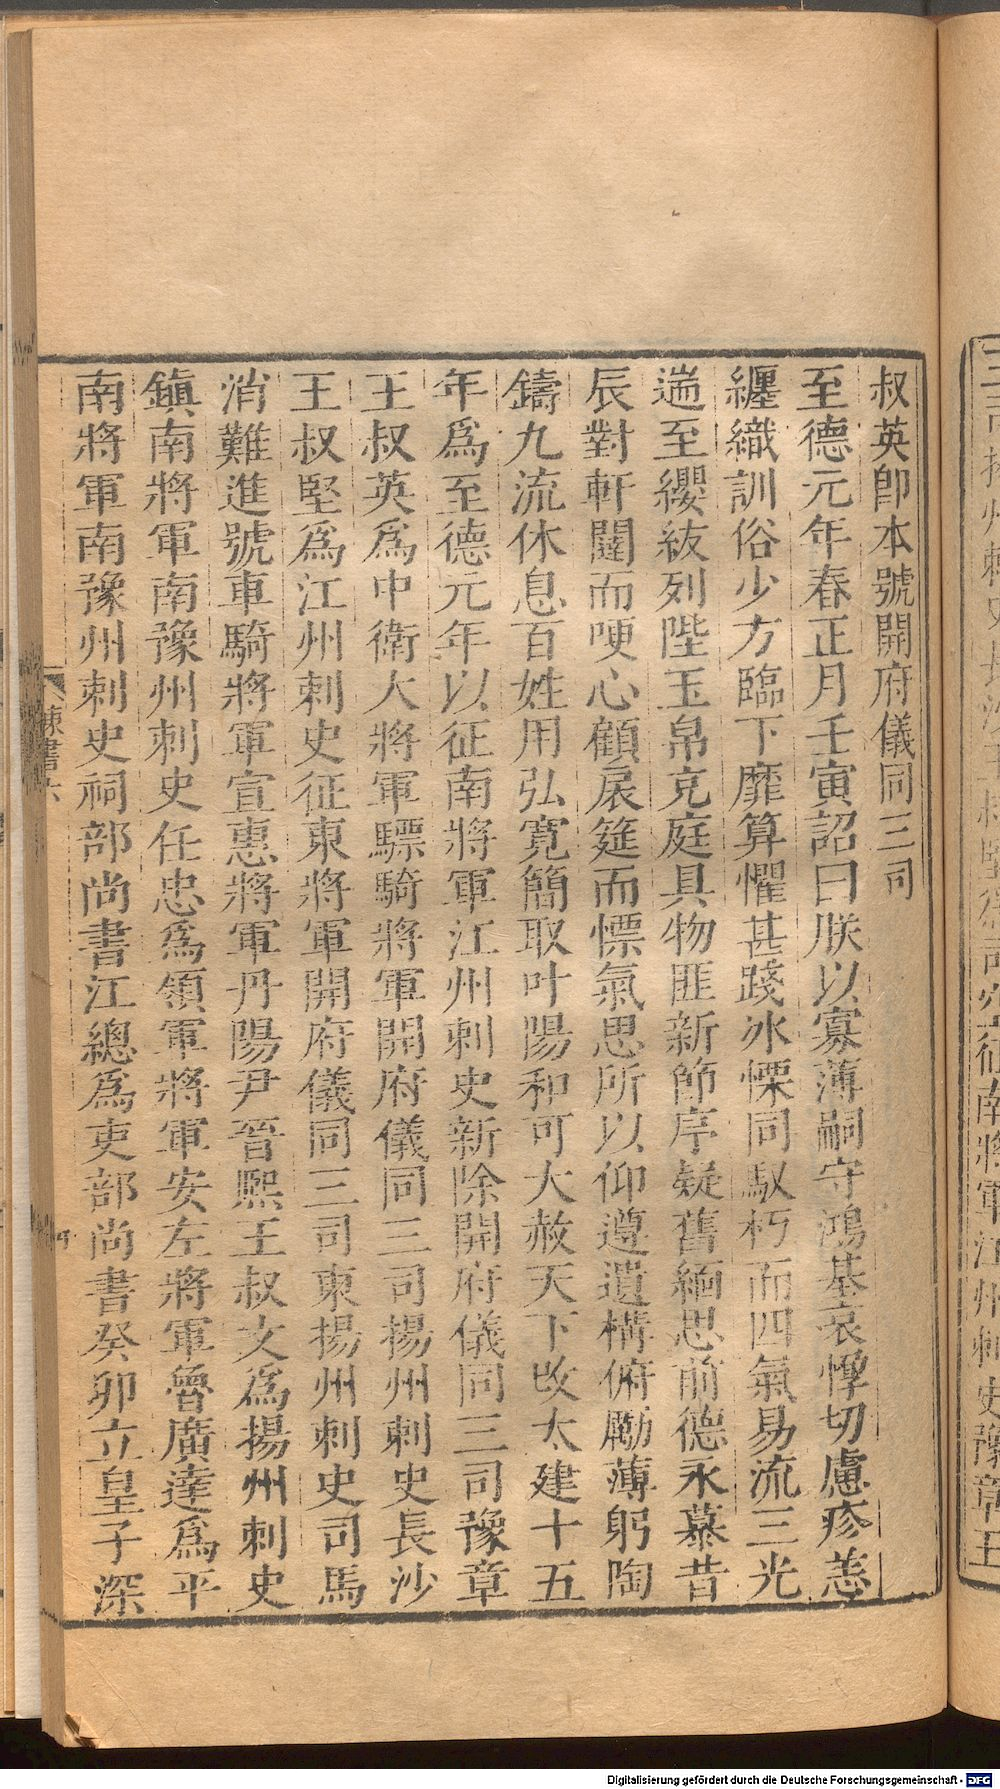 叔英卽本號開府儀同三司
至德元年春正月壬寅詔曰朕以寡薄嗣守鴻基哀惸切慮疹恙
纏織訓俗少方臨下靡算懼甚踐冰慄同馭朽而四氣易流三光
遄至纓紱列陛玉帛充庭具物匪新節序疑舊緬思前德永慕昔
辰對軒闥而哽心顧扆筵而慓氣思所以仰遵遺構俯勵薄躬陶
鑄九流休息百姓用弘寬簡取叶陽和可大赦天下改太建十五
年爲至德元年以征南將軍江州刺史新除開府儀同三司豫章
王叔英爲中衛大將軍驃騎將軍開府儀同三司揚州刺史長沙
王叔堅爲江州刺史征東將軍開府儀同三司東揚州刺史司馬
消難進號車騎將軍宣惠將軍丹陽尹晉熙王叔文爲揚州刺史
鎭南將軍南豫州刺史任忠爲領軍將軍安左將軍魯廣達爲平
南將軍南豫州刺史祠部尚書江總爲吏部尚書癸卯立皇子深
陳書六
Digitalisierung gefördert durch die Deutsche Forschungsgemeinschaft - DFG